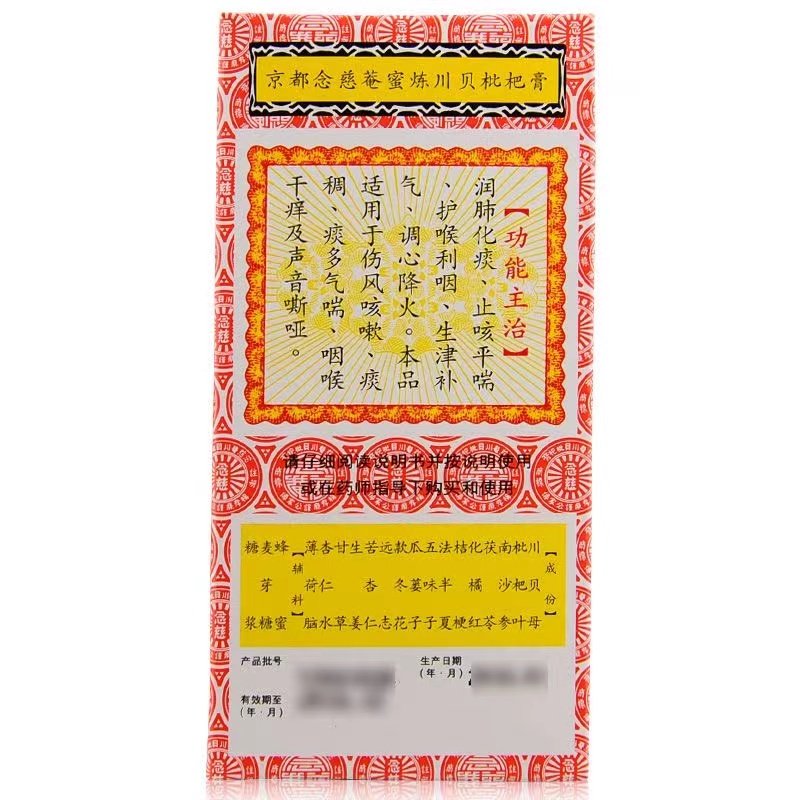 京都念慈菴蜜炼川贝枇杷膏
【功能主治】
润肺化痰、止咳平喘
、护喉利咽、生津补
气、调心降火。本品
适用于伤风咳嗽、痰
稠、痰多气喘、咽喉
干痒及声音嘶哑。
请仔细阅读说明书并按说明使用
或在药师指导下购买和使用
【成份】
川贝母
枇杷叶
南沙参
茯苓
化橘红
桔梗
法半夏
五味子
瓜蒌子
款冬花
远志
苦杏仁
生姜
甘草
杏仁水
薄荷脑
【辅料】
蜂蜜
麦芽糖
糖浆
产品批号
生产日期
(年·月)
有效期至
(年·月)
念慈